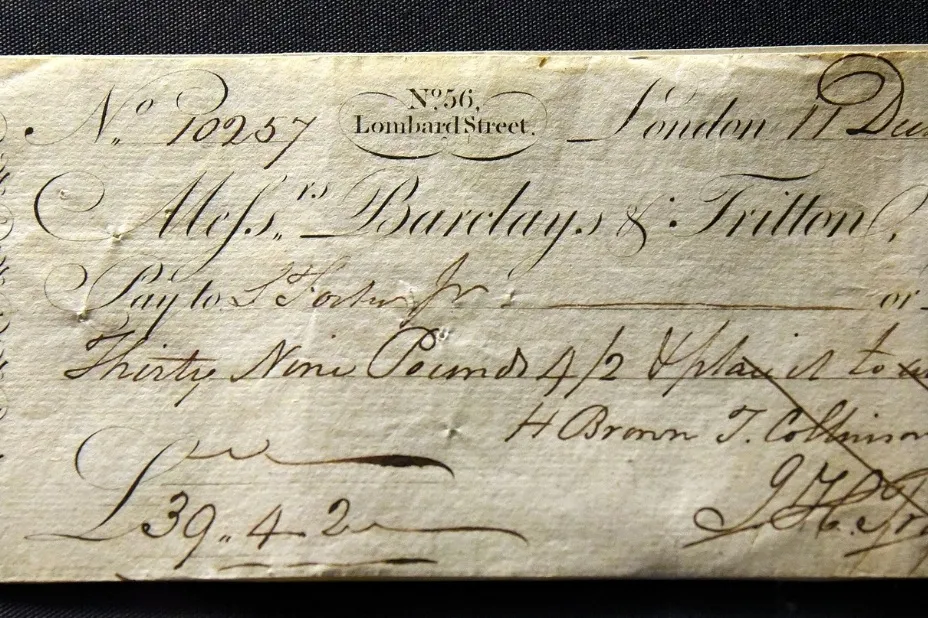 No. 10257
No. 56,
Lombard Street.
London 11
Messrs. Barclays & Tritton
Pay to Jr. or
Thirty Nine Pounds 4/2 & it to
H Brown T. Collinson
£39..4.2